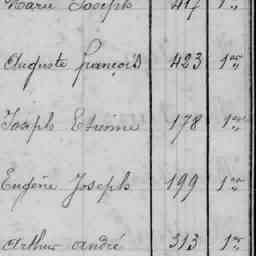 Marie Joseph 417 1er
Auguste françois 423 1er
Joseph Etienne 178 1er
Eugène Joseph 199 1er
Arthur andré 313 1er